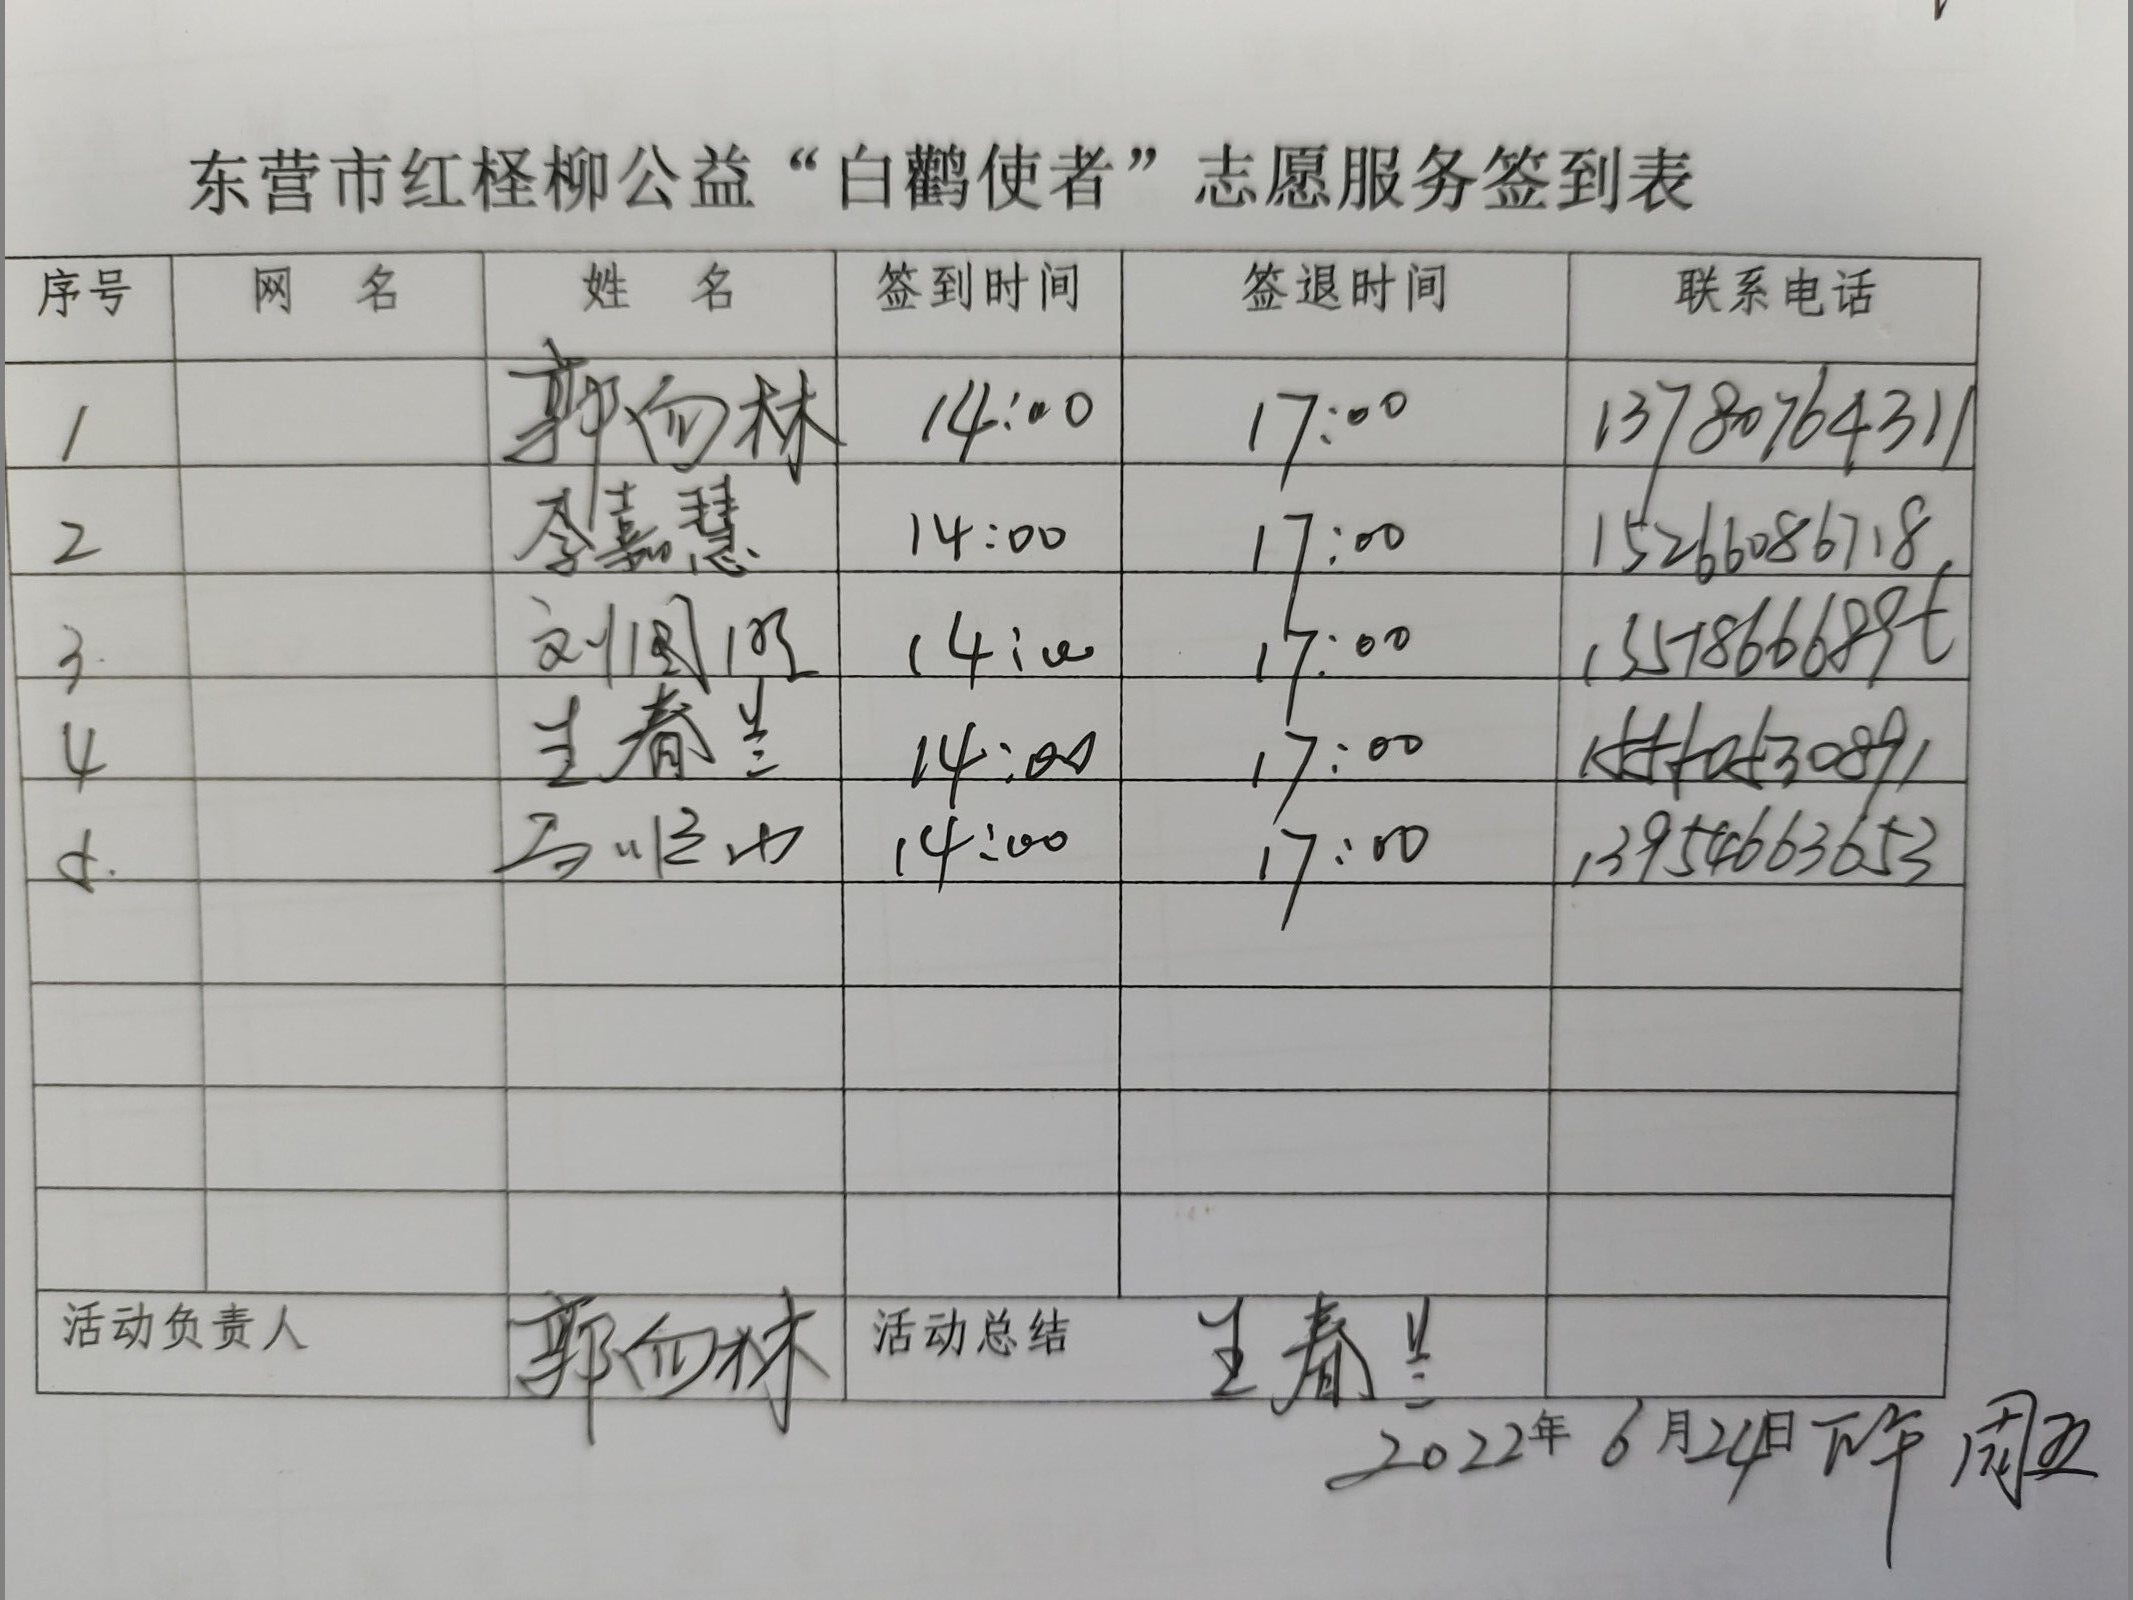 东营市红柽柳公益“白鹳使者”志愿服务签到表
序号 网 名 姓 名 签到时间 签退时间 联系电话
1 郭向林 14:00 17:00 13780764311
2 李嘉慧 14:00 17:00 15266086718
3. 刘国 14:00 17:00
4 王春兰 14:00 17:00
5. 14:00 17:00 13954663653
活动负责人 郭向林 活动总结 王春兰
2022年 6月24日 下午 周五